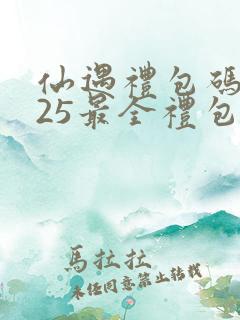 仙遇禮包碼
25最全禮包
馬拉拉
未經同意禁止转载